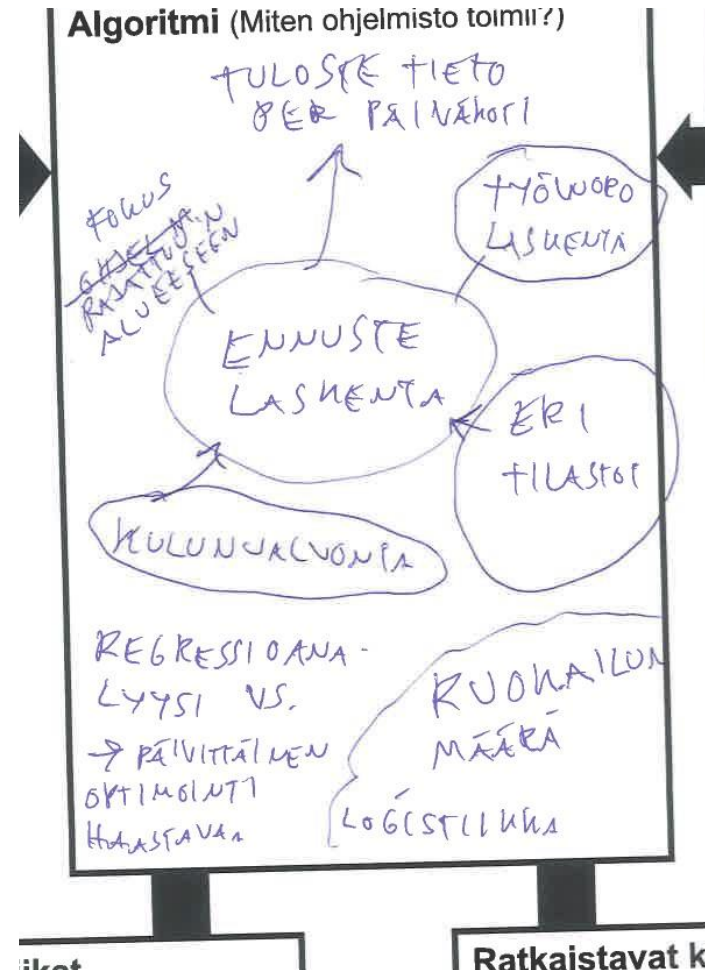 Algoritmi (Miten ohjelmisto toimii?)
TULOSTE TIETO
PER PÄIVÄKOTI
FOKUS
RAJATTUUN
ALUEESEEN
TYÖVUORO
LASKENTA
ENNUSTE
LASKENTA
ERI
TILASTOT
KULUNVALVONTA
REGRESSIOANA-
LYYSI VS.
→ PÄIVITTÄINEN
OPTIMOINTI
HAASTAVAA
RUOKAILUN
MÄÄRÄ
LOGISTIIKKA
Ratkaistavat k